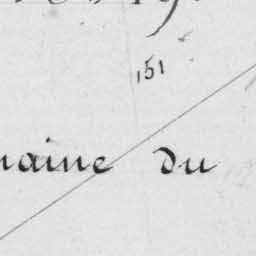 151
maine du